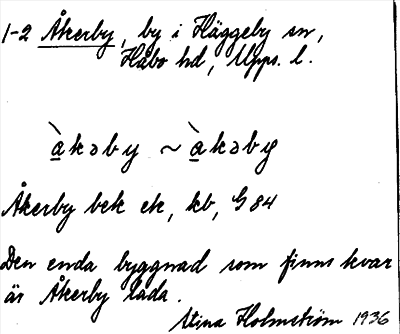 1-2 Åkerby, by i Häggeby sn,
Håbo hd, Upps. l.
àkəby ~ àkəby
Åkerby bek ek, kb, G 84
Den enda byggnad som finns kvar
är Åkerby lada.
Stina Holmström 1936